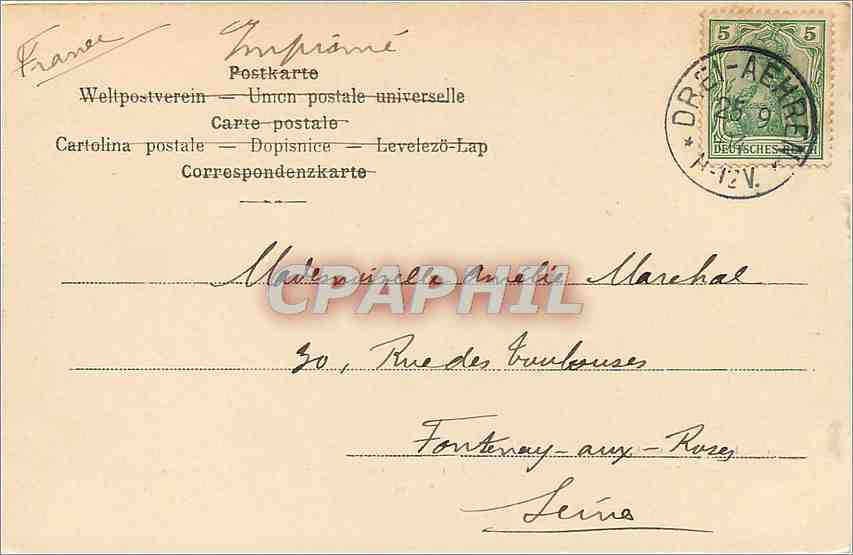 France
Imprimé
Postkarte
Weltpostverein — Union postale universelle
Carte postale
Cartolina postale — Dopisnice — Levelező-Lap
Correspondenzkarte
5 5
DEUTSCHES REICH
DREI-AEHREN
25 9
11-12V.
Mademoiselle Amélie Marchal
CPAPHIL
30, Rue des
Fontenay-aux-Roses
Seine